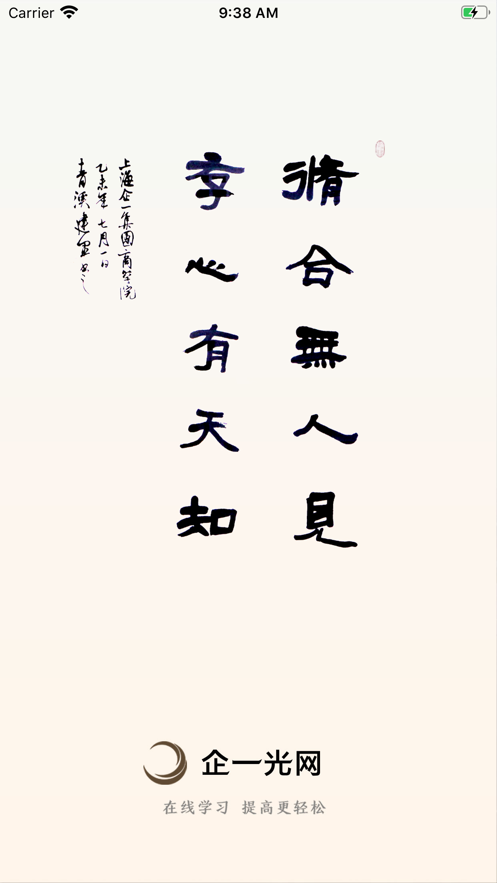 Carrier
9:38 AM
脩合無人見
存心有天知
上海企一集團商學院
乙未年七月一日
企一光网
在线学习 提高更轻松